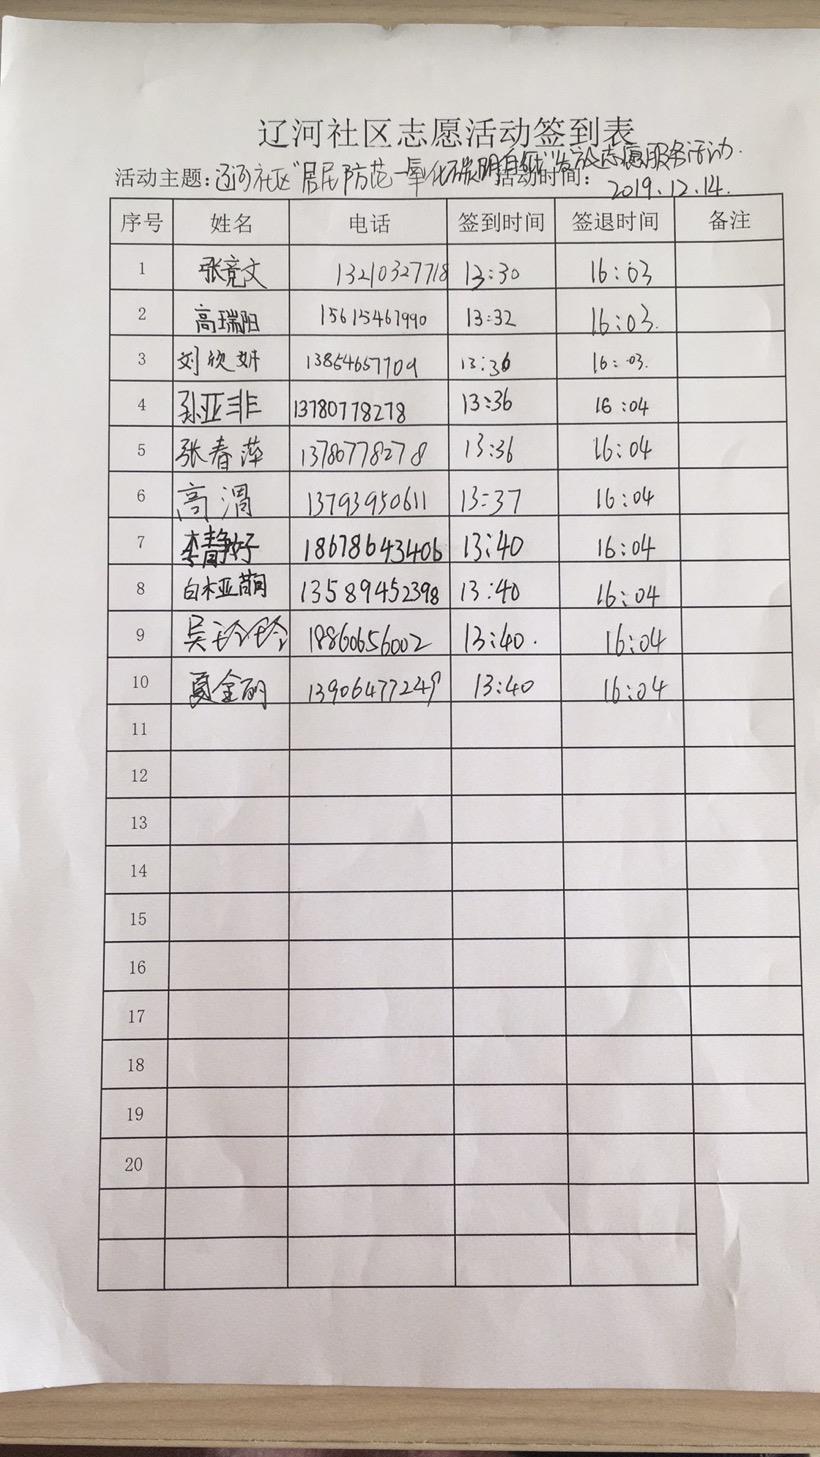 辽河社区志愿活动签到表
活动主题:辽河社区"居民防范一氧化碳明白纸"发放志愿服务活动.
活动时间: 2019.12.14.
序号 姓名 电话 签到时间 签退时间 备注
1 张竞文 13210327718 13:30 16:03
2 高瑞阳 15615461990 13:32 16:03.
3 刘欣妍 13854657709 13:36 16:03.
4 孙亚非 13780778278 13:36 16:04
5 张春萍 13780778278 13:36 16:04
6 高渭 13793950611 13:37 16:04
7 李静好 18678643406 13:40 16:04
8 白木亚萌 13589452398 13:40 16:04
9 吴玲玲 18860656002 13:40. 16:04
10 夏金 13906477249 13:40 16:04
11
12
13
14
15
16
17
18
19
20